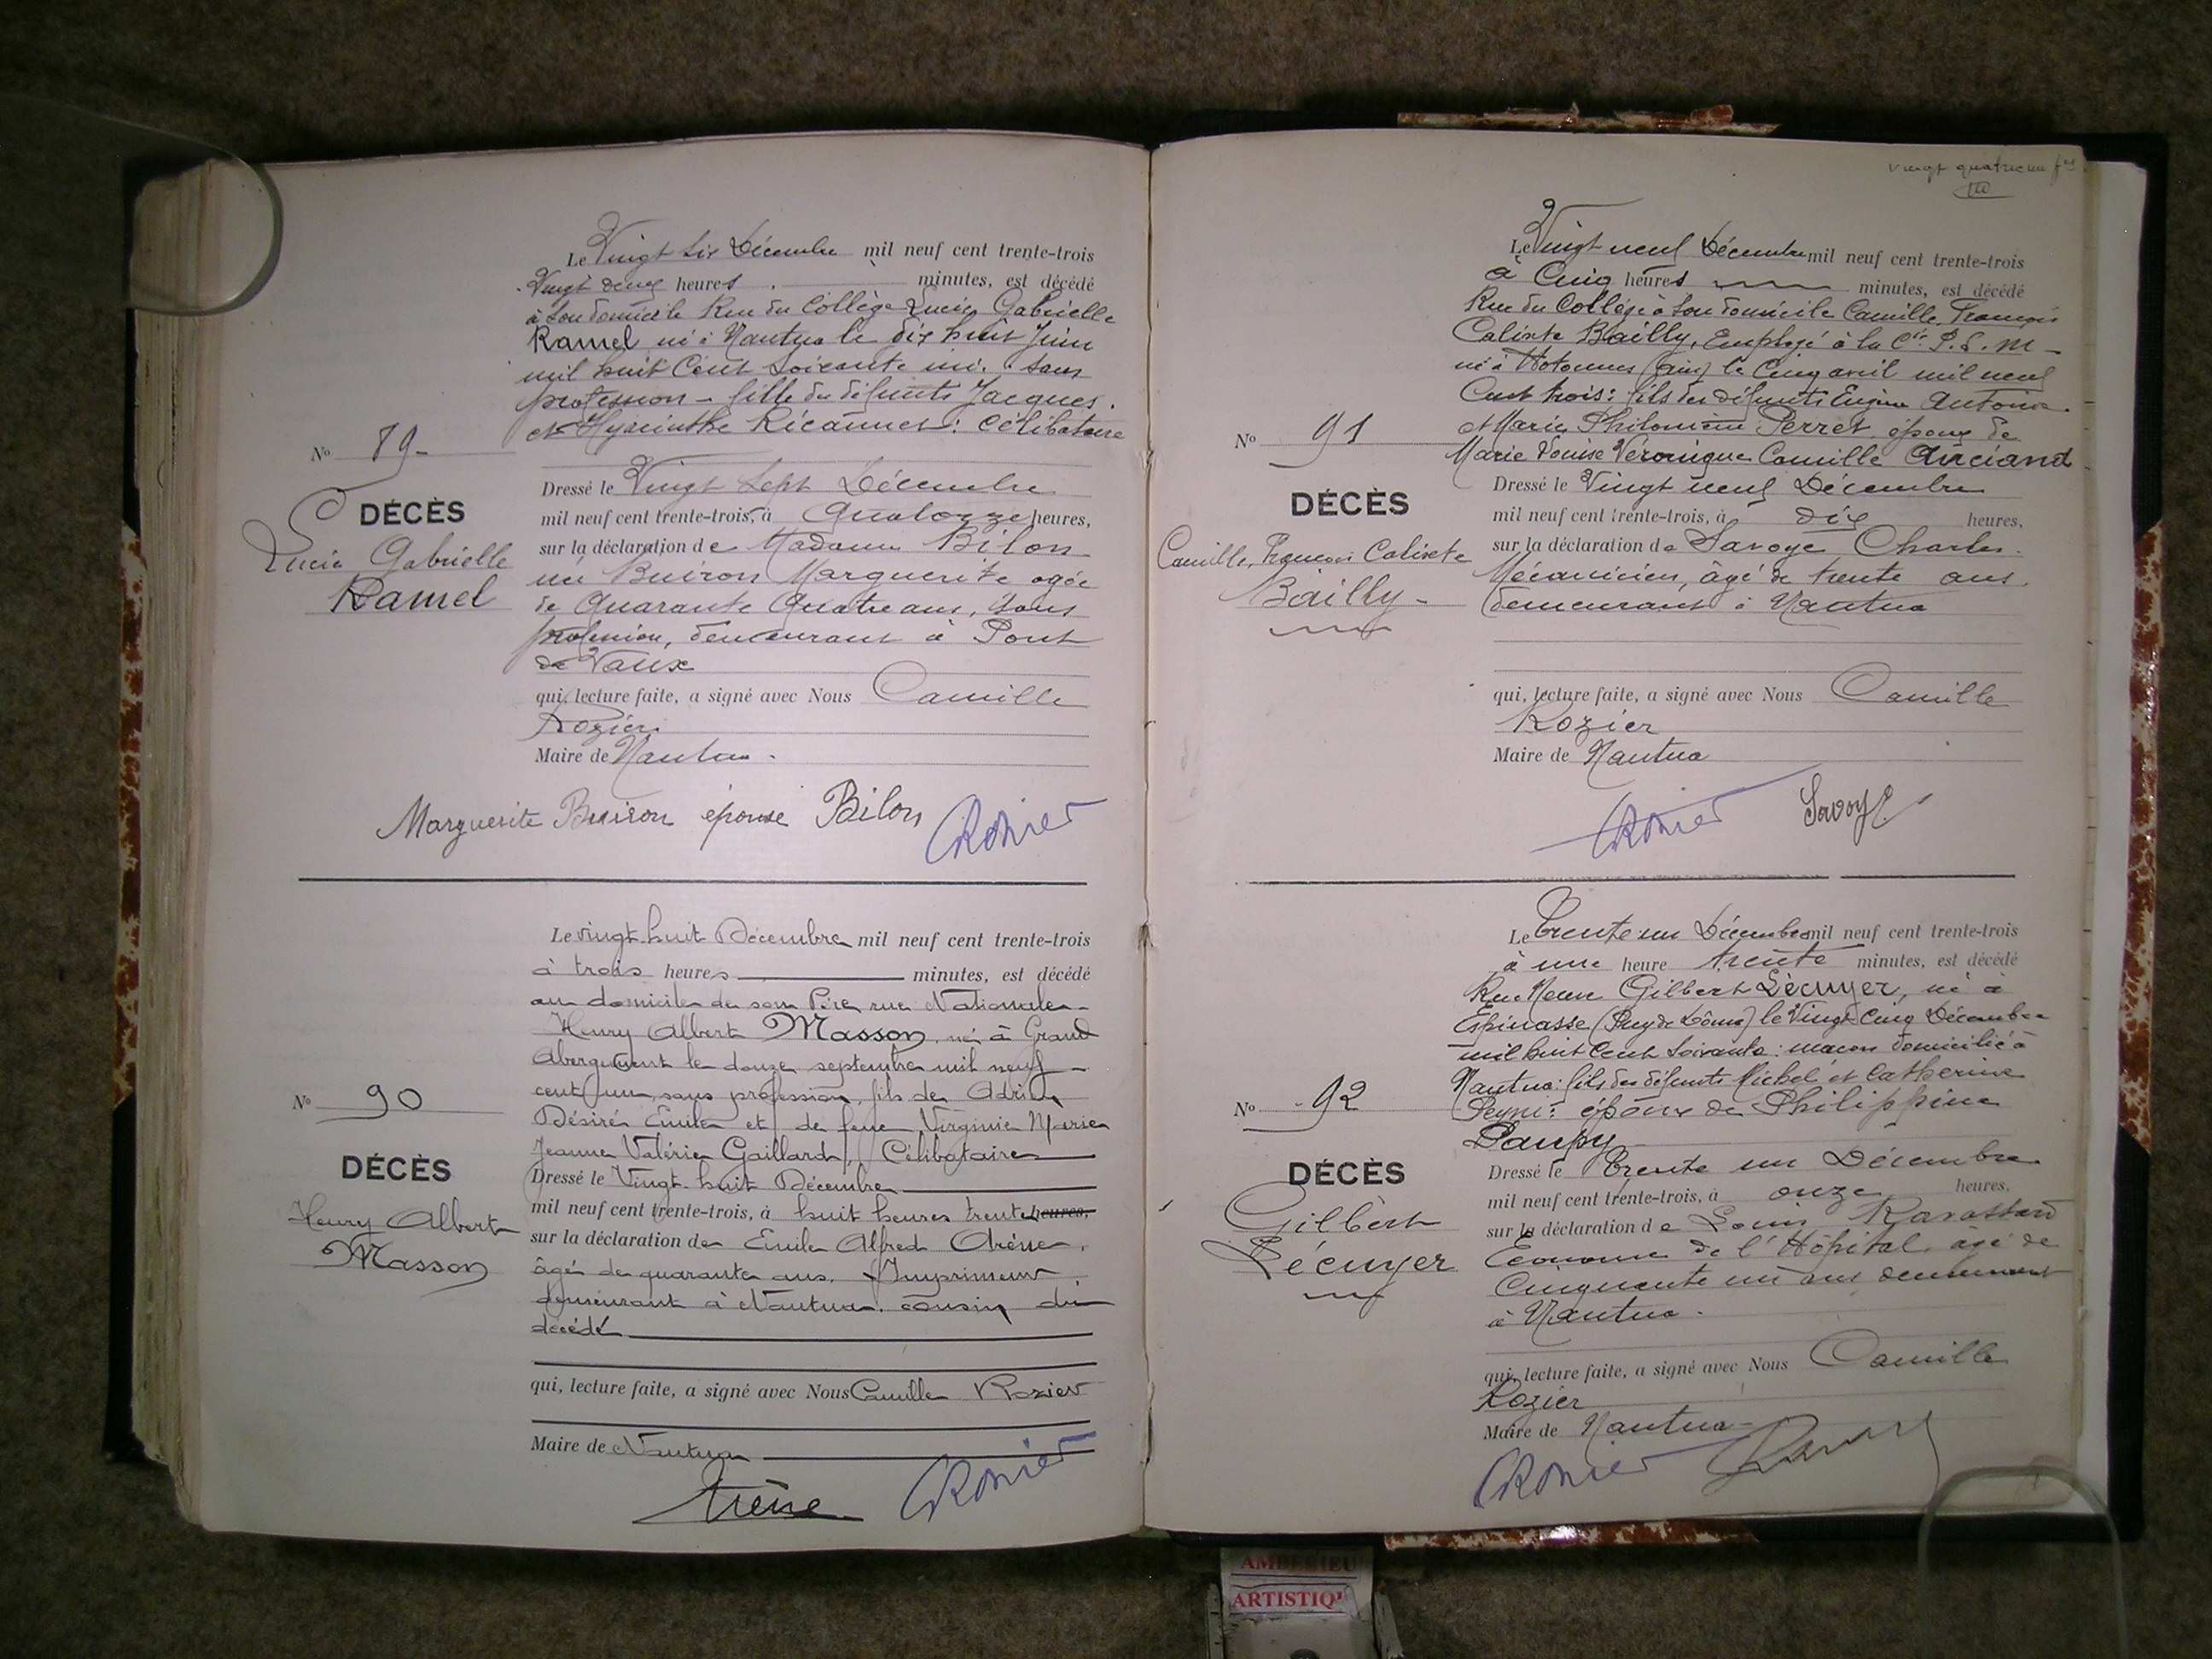 Le Vingt six Décembre mil neuf cent trente-trois
Vingt deux heures minutes, est décédé
à son domicile Rue du Collège Lucie Gabrielle
Ramel né à Nantua le dix huit Juin
mil huit Cent Soixante un. Sans
profession - fille du défunts Jacques
et Hyacinthe : Célibataire
No 89-
DÉCÈS
Lucie Gabrielle
Ramel
Dressé le Vingt Sept Décembre
mil neuf cent trente-trois, à Quatorze heures,
sur la déclaration de Madame Bilon
née Buiron Marguerite agée
de Quarante Quatre ans, Sans
profession, demeurant à Pont
de Vaux
qui, lecture faite, a signé avec Nous Camille
Rozier
Maire de Nantua.
Marguerite Buiron épouse Bilon CRozier
Le vingt huit Décembre mil neuf cent trente-trois
à trois heures minutes, est décédé
au domicile de son Père rue Nationale
Henry Albert Masson, né à Grand
Abergement le douze septembre mil neuf
cent un, sans profession, fils de Adrien
Désiré Emile et de feue Virginie Marie
Jeanne Valérie Gaillard, Célibataire
No 90
DÉCÈS
Henry Albert
Masson
Dressé le Vingt huit Décembre
mil neuf cent trente-trois, à huit heures trente heures,
sur la déclaration de Emile Alfred Arène,
âgé de quarante ans, Imprimeur
demeurant à Nantua, cousin du
décédé
qui, lecture faite, a signé avec Nous Camille Rozier
Maire de Nantua
Arène CRozier
vingt quatrième
Le Vingt neuf Décembre mil neuf cent trente-trois
à Cinq heures minutes, est décédé
Rue du Collège à son domicile Camille, François
Calixte Bailly, Employé à la Cie P. L. M -
né à Hotonnes (Ain) le Cinq avril mil neuf
Cent trois : fils des défunts Eugène Antoine
et Marie Philomène Perret, époux de
Marie Louise Véronique Camille Anciand
No 91
DÉCÈS
Camille, François Calixte
Bailly -
Dressé le Vingt neuf Décembre
mil neuf cent trente-trois, à dix heures,
sur la déclaration de Savoye Charles
Mécanicien, âgé de trente ans
demeurant à Nantua
qui, lecture faite, a signé avec Nous Camille
Rozier
Maire de Nantua
CRozier Savoye
Le Trente un Décembre mil neuf cent trente-trois
à une heure trente minutes, est décédé
Rue Neuve Gilbert Lécuyer, né à
Espinasse (Puy de Dôme) le Vingt Cinq Décembre
mil huit Cent Soixante : maçon domicilié à
Nantua : fils des défunts Michel et Catherine
Peyni : époux de Philippine
Paupy
No 92
DÉCÈS
Gilbert
Lécuyer
Dressé le Trente un Décembre
mil neuf cent trente-trois, à onze heures,
sur la déclaration de Louis
Econome de l'Hôpital, âgé de
Cinquante un ans demeurant
à Nantua.
qui, lecture faite, a signé avec Nous Camille
Rozier
Maire de Nantua -
CRozier
AMBERIEU
ARTISTIQ